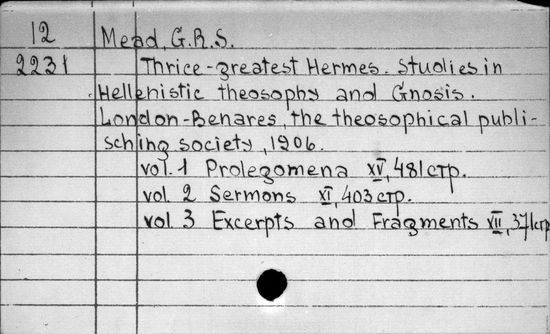 12 Mead, G.R.S.
2231 Thrice-greatest Hermes. Studies in
Hellenistic theosophy and Gnosis.
London-Benares, the theosophical publi-
sching society, 1906.
vol. 1 Prolegomena XV, 481 стр.
vol. 2 Sermons XI, 403 стр.
vol. 3 Excerpts and Fragments XII, 371 стр